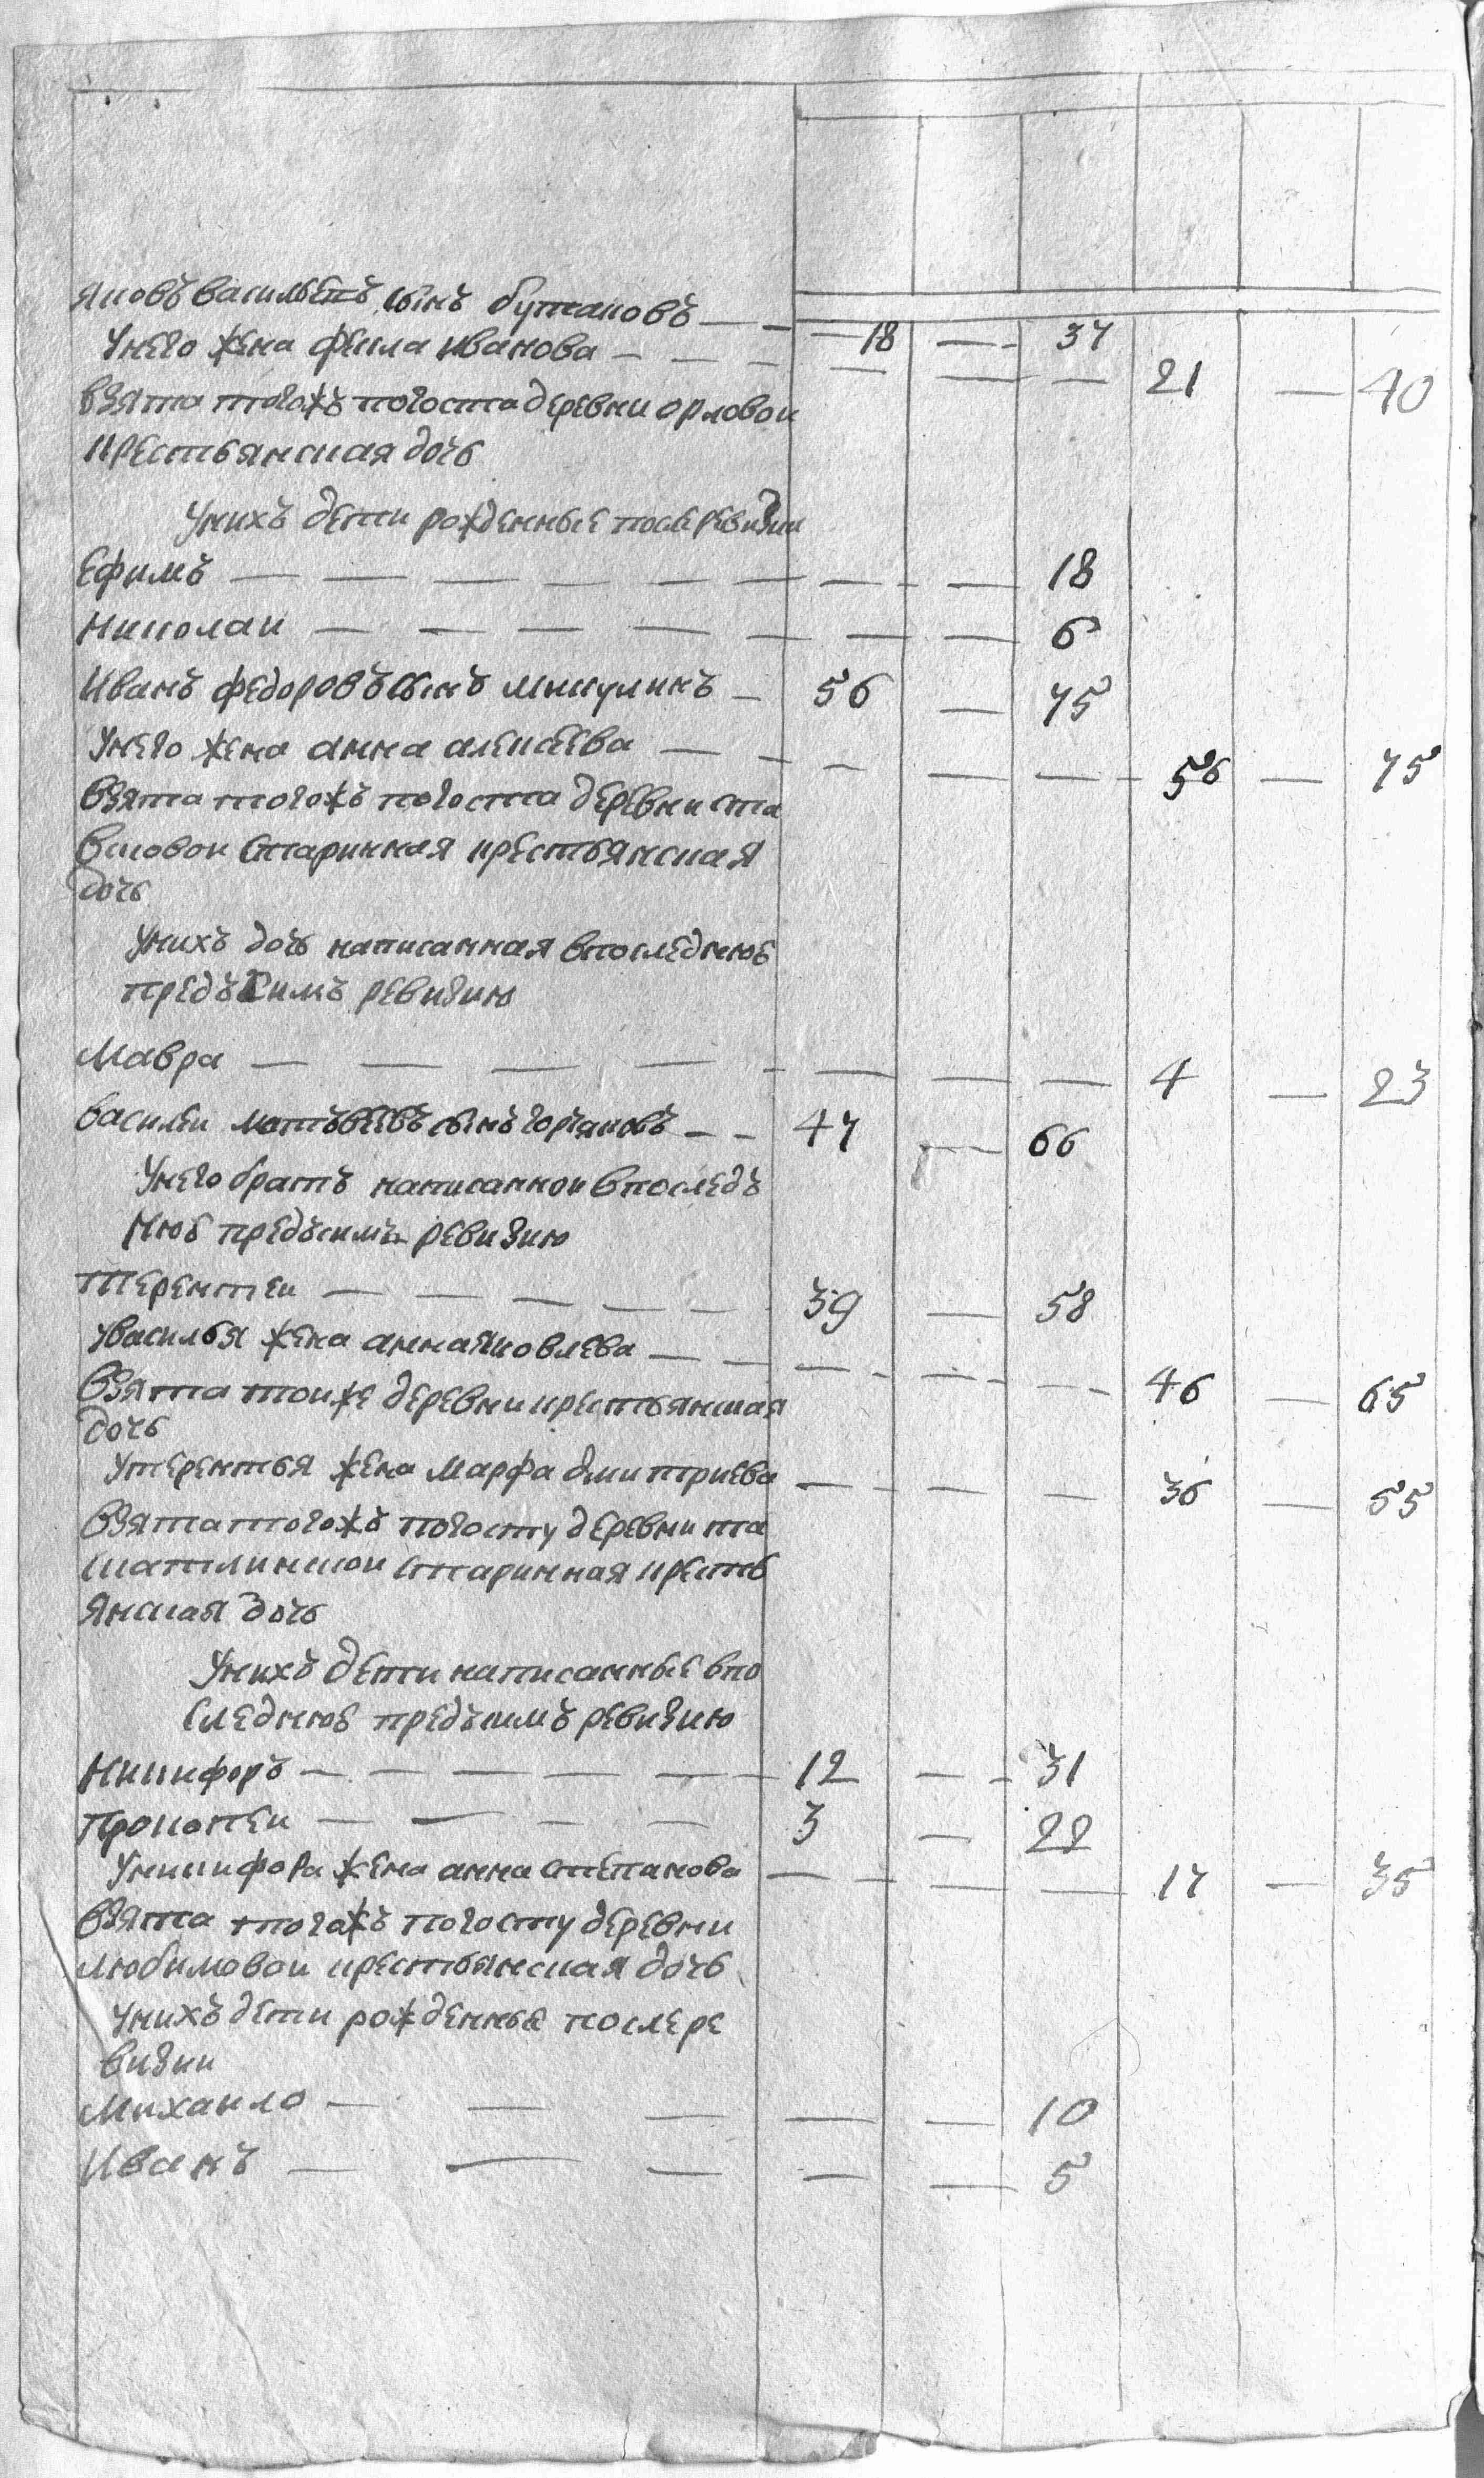 Яковъ васильевъ сынъ бутаковъ — — — 18 — — 37
Унего жена фекла иванова — — — — — — 21 — 40
взята тогожъ погоста деревни орловои
крестьянская дочь
Унихъ дети рожденные после ревизии
Ефимъ — — — — — — — — 18
Николаи — — — — — — — 6
Иванъ федоровъ сынъ микулинъ — 56 — 75
Унего жена анна алексеева — — — — — 56 — 75
взята тогожъ погоста деревни ста
вковои старинная крестьянская
дочь
Унихъ дочь написанная впоследнюю
предъ симъ ревизию
Мавра — — — — — — — — 4 — 23
василеи матъвеевъ сынъ — — 47 — 66
Унего братъ написаннои впоследъ
нюю предъсимъ ревизию
терентеи — — — — — 39 — 58
Увасилья жена анна яковлева — — — — — — 46 — 65
взята тоиже деревни крестьянская
дочь
Утерентья жена марфа дмитриева — — — — 36 — 55
взята тогожъ погосту деревни
старинная кресть
янская дочь
Унихъ дети написанные впо
следнюю предъсимъ ревизию
Никифоръ — — — — — — 12 — — 31
прокопеи — — — — 3 — 22
Уникифора жена анна степанова — — — — 17 — 35
взята тогожъ погосту деревни
любимовои крестьянская дочь
Унихъ дети рожденные послере
визии
Михаило — — — — — 10
Иванъ — — — — — 5